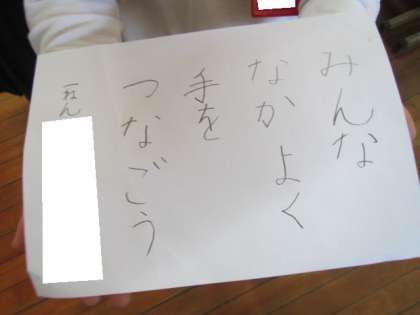 みんな
なかよく
手を
つなごう
一ねん